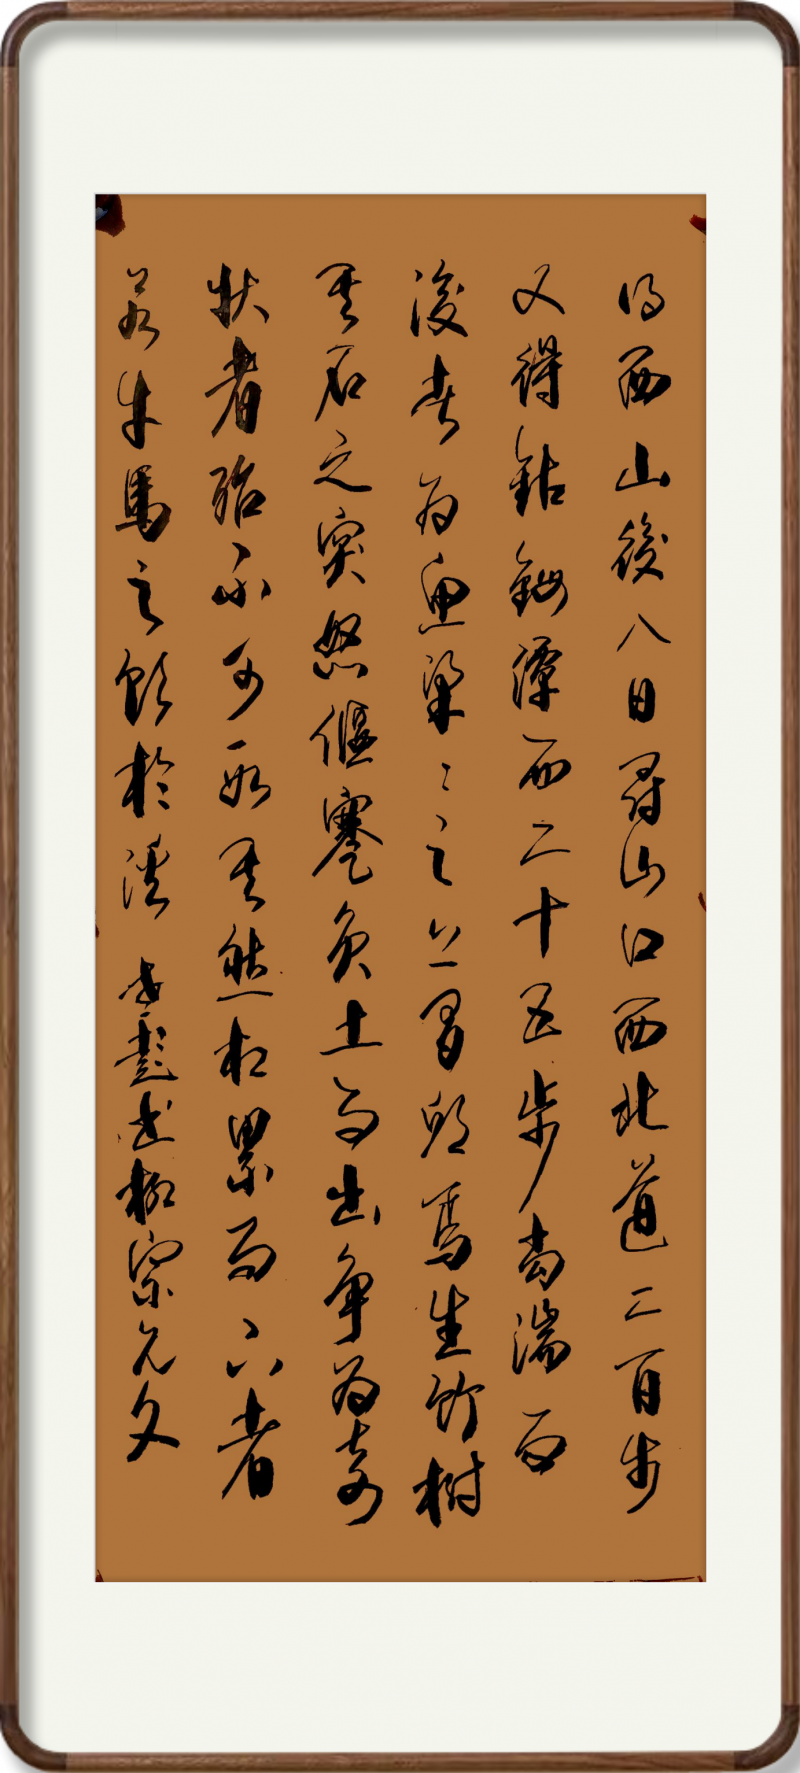 得西山後八日尋山口西北道二百步
又得鈷鉧潭西二十五步當湍而
浚者為魚梁〻之上有丘焉生竹樹
其石之突怒偃蹇負土而出爭為奇
狀者殆不可數其然相累而下者
若牛馬之飲於溪 彪書柳宗元文